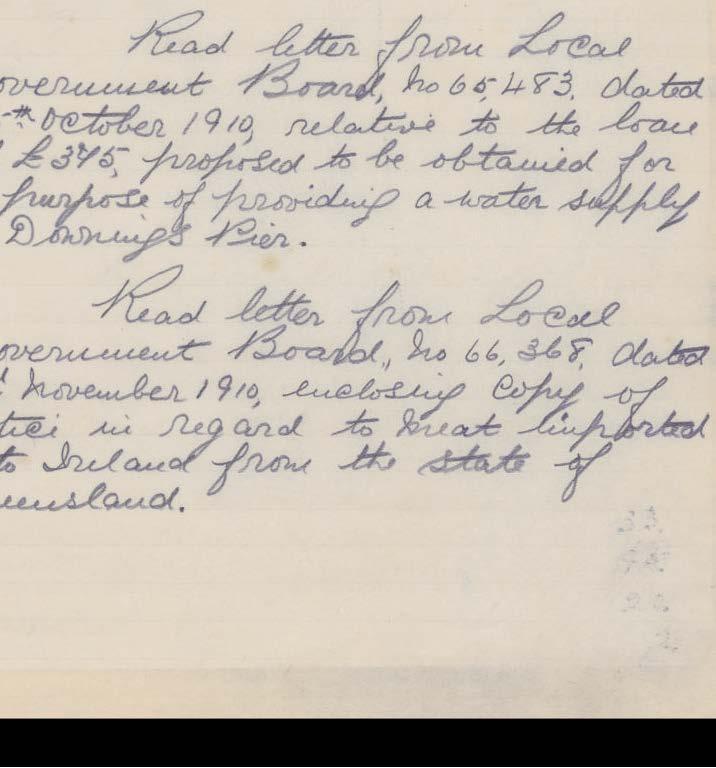 Read letter from Local
overnment Board, No 65,483, dated
th October 1910, relative to the loan
£375, proposed to be obtained for
purpose of providing a water supply
Downings Pier.
Read letter from Local
overnment Board, No 66,368, dated
November 1910, enclosing Copy of
tice in regard to meat imported
to Ireland from the state of
eensland.